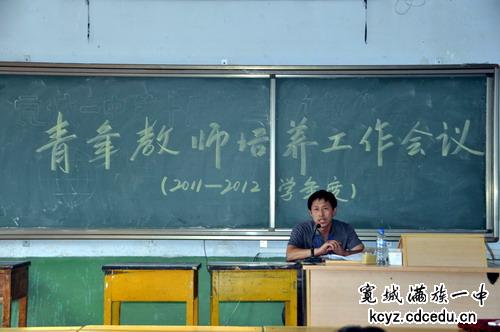 青年教师培养工作会议
(2011—2012 学年度)
宽城满族一中
kcyz.cdcedu.cn